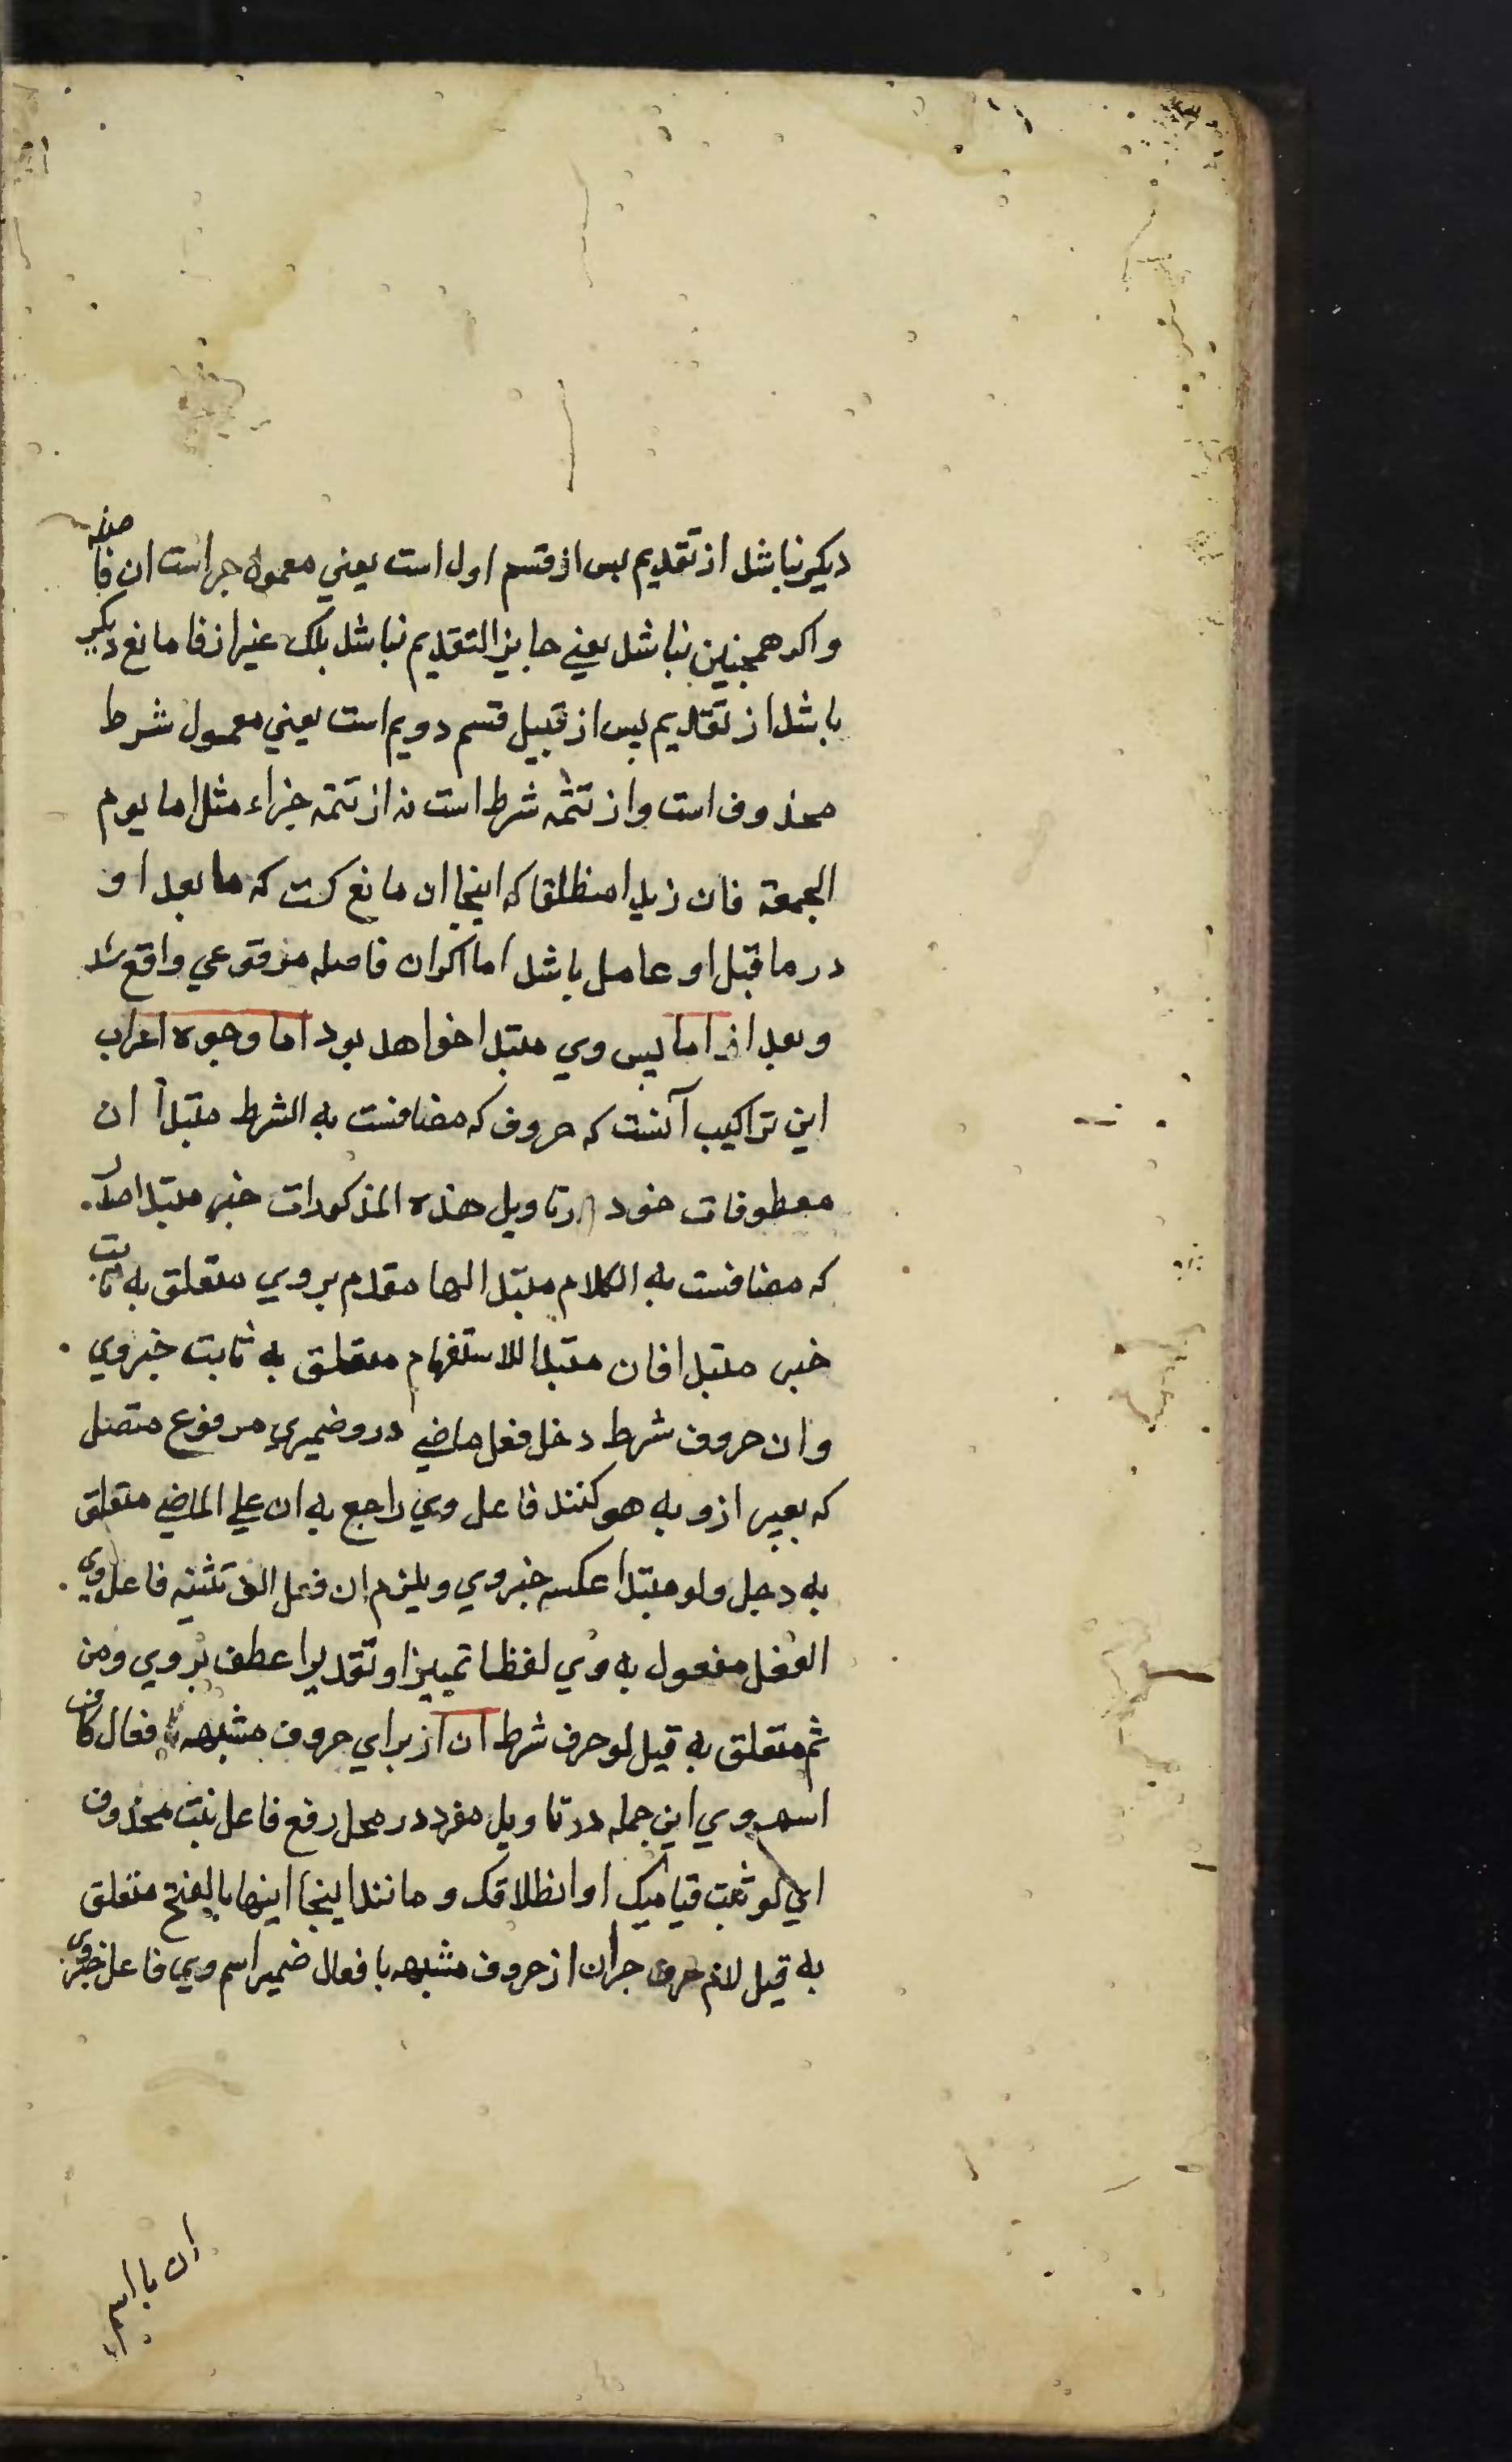 دیکر نباشد از تقدیم بس از قسم اول است یعنی معمول جزاست ان فاصله
واکر همچنین نباشد یعنی جایز التقدیم نباشد بلک غیر از فا مانع دیکر
باشد از تقدیم بس از قبیل قسم دویم است یعنی معمول شرط
محذوف است و از تتمه شرط است نه از تتمه جزاء مثل اما یوم
الجمعة فان زیدا منطلقا که اینجا ان مانع کست که ما بعد او
در ما قبل او عامل باشد اما اکر ان فاصله مرفوعی واقع شد
و بعد از اما بس وی مبتدا خواهد بود اما وجوه اعراب
این تراکیب آنست که حروف که مضافست به الشرط مبتدأ ان
معطوفات خود در تاویل هذه المذکورات خبر مبتدا صدر
که مضافست به الکلام مبتدا لها مقدم بر وی متعلق به ثابت
خبر مبتدا فان مبتدا للاستفهام متعلق به ثابت خبر وی
وان حروف شرط دخل فعل ماضی درو ضمیری مرفوع متصل
که بعیر ازو به هو کنند فاعل وی راجع به ان علی الماضی متعلق
به دخل ولو مبتدا عکسه خبر وی ویلزم ان فعل الف تثنیه فاعل وی
الفعل مفعول به وی لفظا تمییز او تقدیرا عطف بر وی ومن
ثم متعلق به قیل لو حرف شرط ان از برای حروف مشبهه با فعال کاف
اسم وی این جمله در تاویل مفرد در محل رفع فاعل ثبت محذوف
ای لو ثبت قیامک او انطلاقک و مانند اینجا اینها بالفتح متعلق
به قیل لانه حرف جر ان از حروف مشبهه با فعال ضمیر اسم وی فاعل خبر وی
ان با اسم